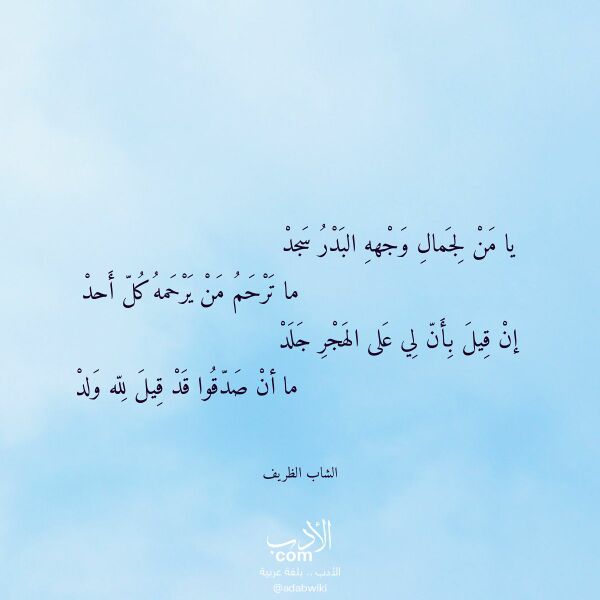 يا مَنْ لِجَمالِ وَجْههِ البَدْرُ سَجدْ
ما تَرْحَمُ مَنْ يَرْحَمهُ كُلّ أَحدْ
إنْ قِيلَ بِأَنّ لِي عَلى الهَجْرِ جَلَدْ
ما أنْ صَدّقُوا قَدْ قِيلَ لِلّه وَلدْ
الشاب الظريف
الأدب
com
الأدب .. بلغة عربية
@adabwiki